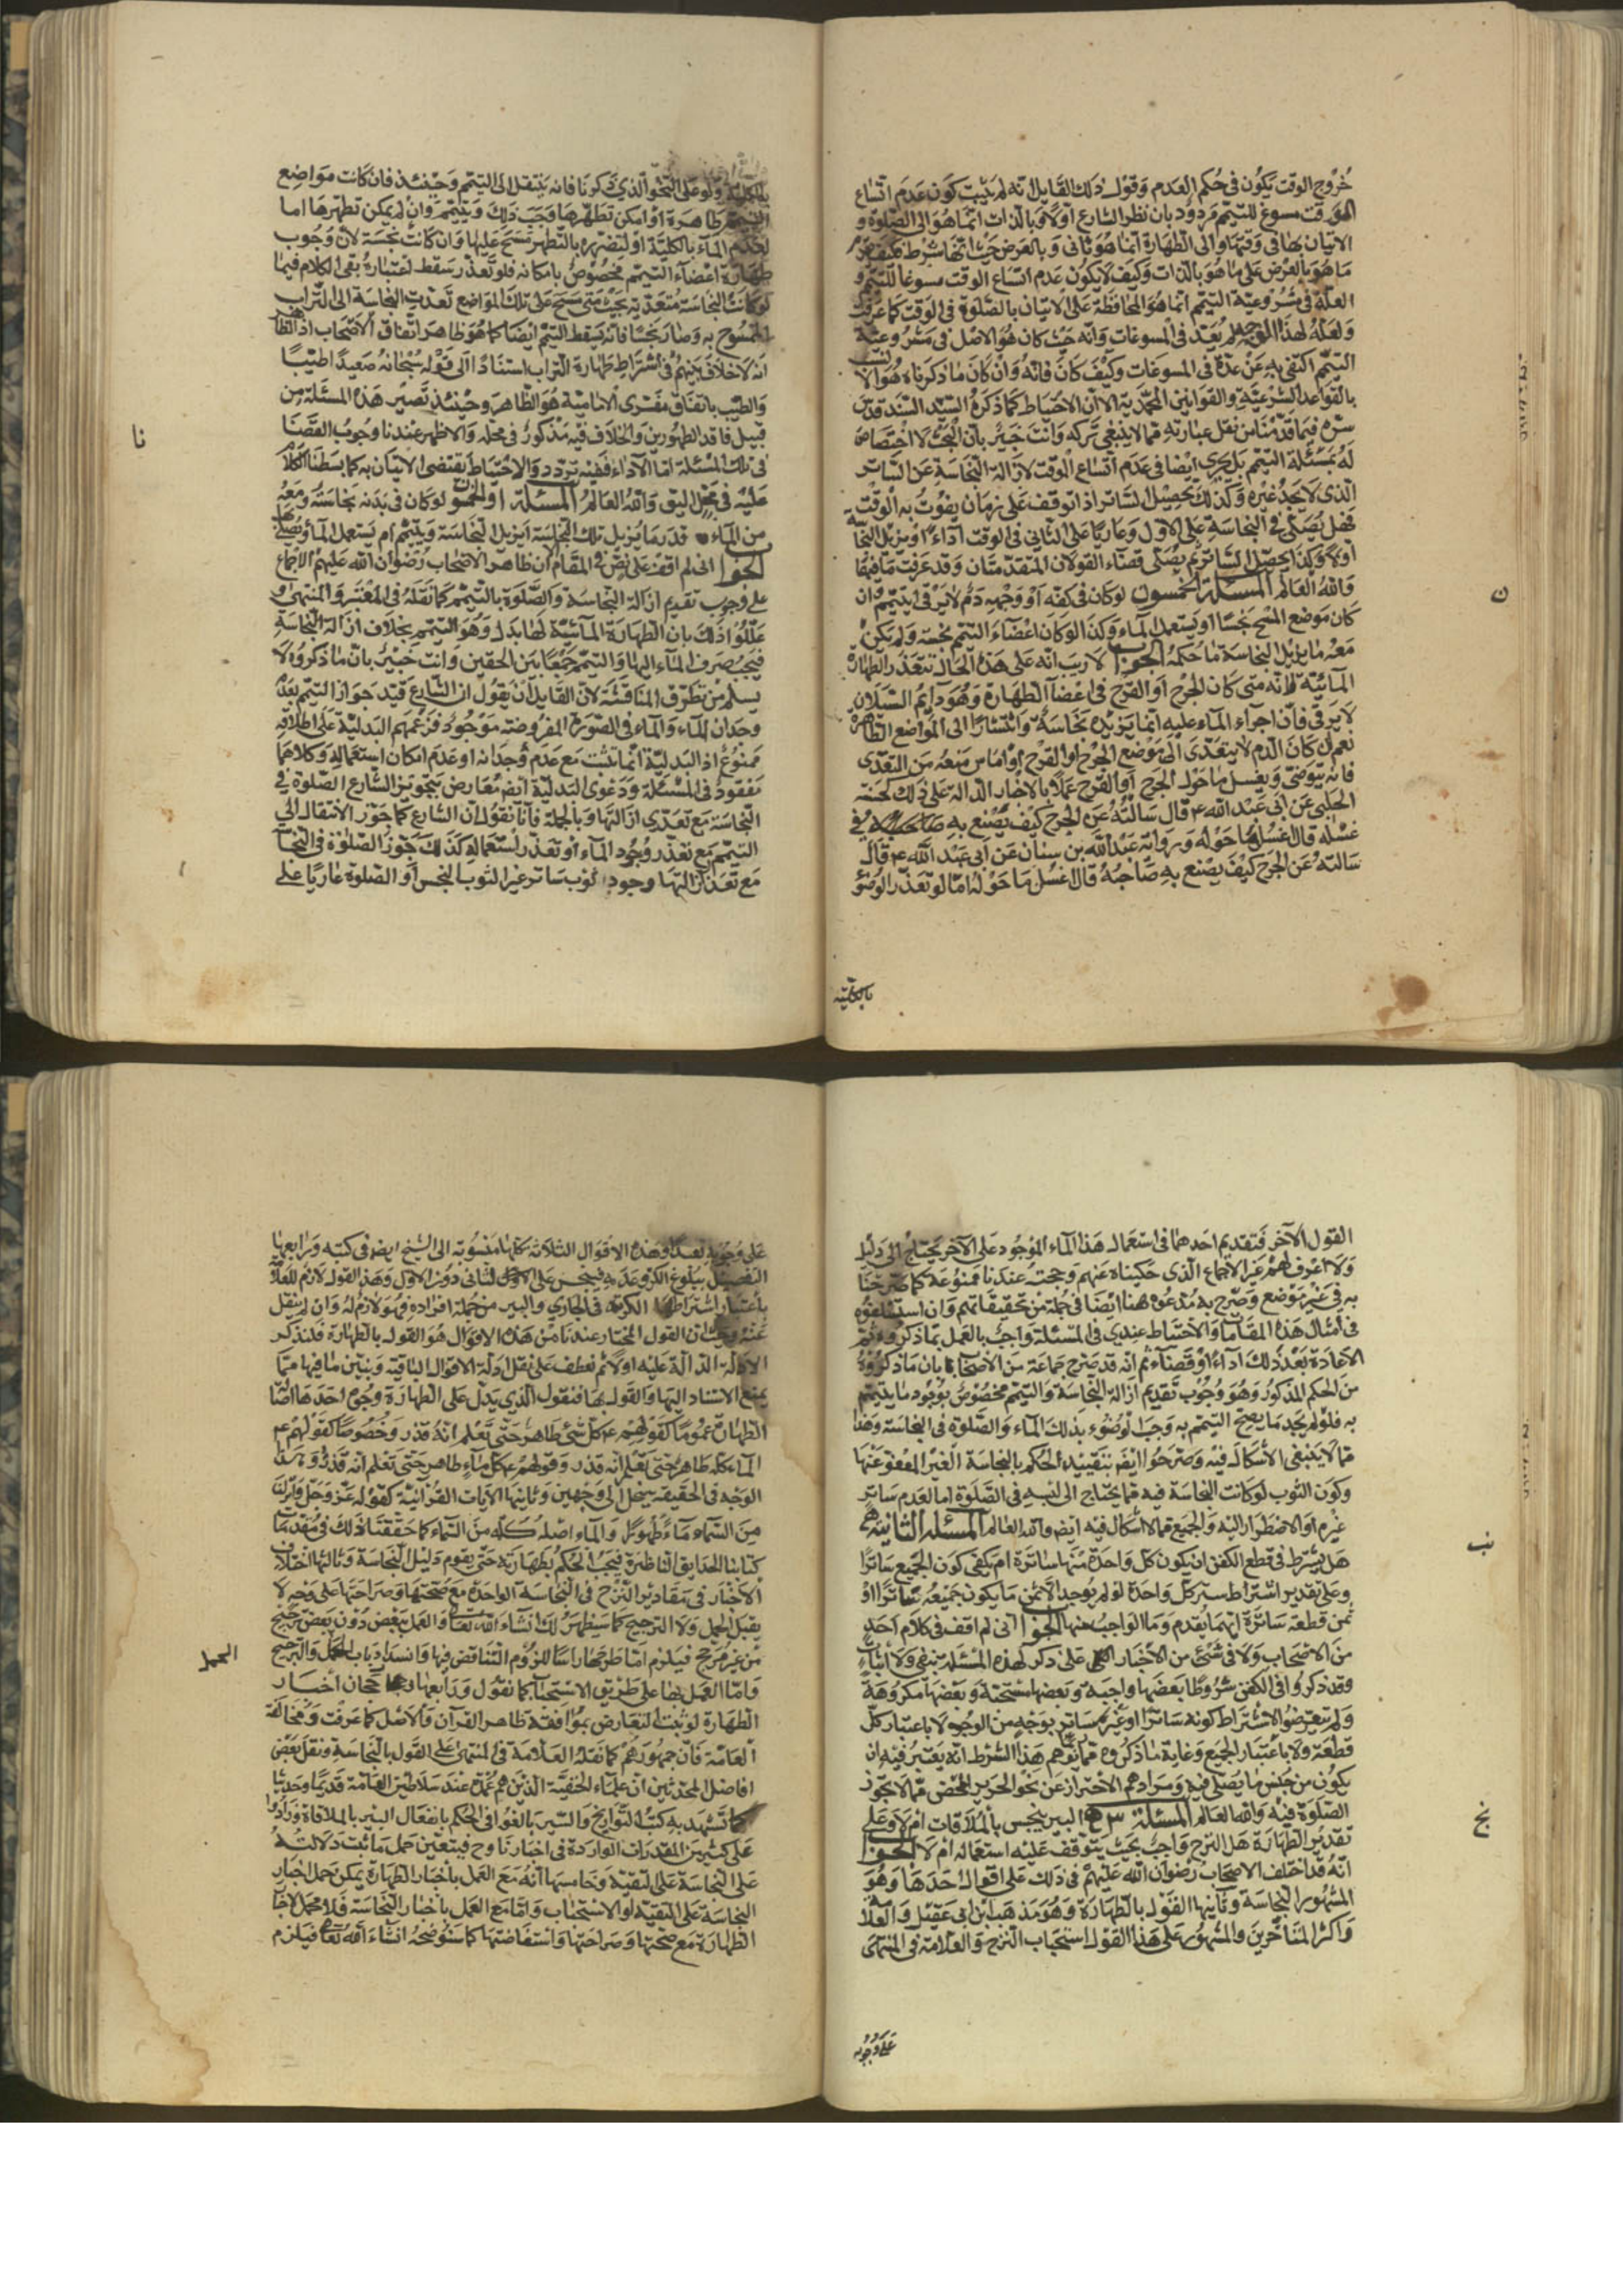 خروج الوقت يكون في حكم العدم وقول ذلك القايل انه لم يثبت كون عدم اتساع
الوقت مسوغ للتيمم مردود بان نظر الشارع اولا وبالذات انما هو الى الصلوة و
الاتيان بها في وقتها والى الطهارة انما هو ثانى وبالعرض حيث انها شرط فكيف
ما هو بالعرض على ما هو بالذات وكيف لا يكون عدم اتساع الوقت مسوغا للتيمم و
العلة في مشروعية التيمم انما هو المحافظة على الاتيان بالصلوة في الوقت كما عرفت
ولعله لهذا الوجه لم يعد في المسوغات وانه حيث كان هو الاصل في مشروعية
التيمم اكتفى به عن عده في المسوغات وكيف كان فانه وان كان ما ذكرناه هو الانسب
بالقواعد الشرعية والقوانين المحمدية الا ان الاحتياط كما ذكره السيد السند قدس
سره فيما قدمنا من نقل عبارته مما لا ينبغي تركه وانت خبير بان البحث لا اختصاص
له بمسئلة التيمم بل يجري ايضا في عدم اتساع الوقت لازالة النجاسة عن الساتر
الذى لا يجد غيره وكذلك تحصيل الساتر اذا توقف على زمان يفوت به الوقت
فهل يصلى في النجاسة على الاول وعاريا على الثاني في الوقت اداء او يزيل النجاسة
اولا وكذا يحصل الساتر ثم يصلى قضاء القولان المتقدمتان وقد عرفت ما فيها
والله العالم المسئلة الخمسون لو كان في كفه او وجهه دم لا يرقى ايتيمم وان
كان موضع المسح نجسا او يستعمل الماء وكذا لو كان اعضاء التيمم نجسة ولم يكن
معه ما يزيل النجاسة ما حكمه الجواب لا ريب انه على هذه الحال تتعذر الطهارة
المائية لانه متى كان الجرح او القرح في اعضاء الطهارة وهو دايم السيلان
لا يرقى فان اجراء الماء عليه انما يزيده نجاسة وانتشارا الى المواضع الطاهرة
نعم ان كان الدم لا يتعدى الى موضع الجرح او القرح او اماس منعه من التعدى
فانه يتوضى ويغسل ما حول الجرح او القرح عملا بالاخبار الدالة على ذلك كحسنة
الحلبي عن ابي عبد الله ع قال سالته عن الجرح كيف يصنع به صاحبه في
غسله قال اغسل ما حوله ورواية عبد الله بن سنان عن ابي عبد الله ع قال
سالته عن الجرح كيف يصنع به صاحبه قال اغسل ما حوله اما لو تعذر الوضؤ
بالكلية
ن
بالكلية ولو على النحو الذي ذكرنا فانه ينتقل الى التيمم وحينئذ فان كانت مواضع
التيمم طاهرة او امكن تطهيرها وجب ذلك ويتيمم وان لم يمكن تطهرها اما
لعدم الماء بالكلية او لتضرره بالتطهر مسح عليها وان كانت نجسة لان وجوب
طهارة اعضاء التيمم مخصوص بامكانه فلو تعذر سقط اعتباره بقى الكلام فيما
لو كانت النجاسة متعدية بحيث متى مسح على تلك المواضع تعدت النجاسة الى التراب
الممسوح به وصار نجسا فانه يسقط التيمم ايضا كما هو ظاهر اتفاق الاصحاب اذ الظاهر
انه لا خلاف بينهم في اشتراط طهارة التراب استنادا الى قوله سبحانه صعيدا طيبا
والطيب باتفاق مفسرى الامامية هو الطاهر وحينئذ تصير هذه المسئلة من
قبيل فاقد الطهورين والخلاف فيه مذكور في محله والاظهر عندنا وجوب القضا
في تلك المسئلة اما الاداء ففيه تردد والاحتياط يقتضى الاتيان به كما بسطنا الكلام
عليه في محل اليق والله العالم المسئلة او الخمسون لو كان في بدنه نجاسة ومعه
من الماء قدر ما يزيل تلك النجاسة ايزيل النجاسة ويتيمم ام يستعمل الماء ويصلى
الجواب اني لم اقف على نص في المقام لكن ظاهر الاصحاب رضوان الله عليهم الاجماع
على وجوب تقديم ازالة النجاسة والصلوة بالتيمم كما نقله في المعتبر والمنتهى و
عللوا ذلك بان الطهارة المائية لها بدل وهو التيمم بخلاف ازالة النجاسة
فيجب صرف الماء اليها والتيمم جمعا بين الحقين وانت خبير بان ما ذكروه لا
يسلم من تطرق المناقشة لان القايل ان يقول ان الشارع قيد جواز التيمم بعدم
وجدان الماء والماء في الصورة المفروضة موجود فزعمهم البدلية على اطلاقه
ممنوع اذ البدلية انما تثبت مع عدم وجدانه او عدم امكان استعماله وكلاهما
مفقود في المسئلة ودعوى البدلية ايضا معارض بتجويز الشارع الصلوة في
النجاسة مع تعذرى ازالتها وبالجملة فانا نقول ان الشارع كما جوز الانتقال الى
التيمم مع تعذر وجود الماء او تعذر استعماله كذلك جوز الصلوة في النجاسة
مع تعذر ازالتها وجود ثوب ساتر غير الثوب النجس او الصلوة عاريا على
نا
القول الآخر فتقديم احدهما في استعمال هذا الماء الموجود على الآخر يحتاج الى دليل
ولا اعرف لهم غير الاجماع الذى حكيناه عنهم وحجته عندنا ممنوعة كما صرحنا
به في غير موضع وصرح به مدعوه هنا ايضا في جملة من تحقيقاتهم وان استسلفوه
في امثال هذه المقامات والاحتياط عندي في المسئلة واجب بالعمل بما ذكروه ثم
الاعادة بعد ذلك اداء او قضاء ثم انه قد صرح جماعة من الاصحاب بان ما ذكروه
من الحكم المذكور وهو وجوب تقديم ازالة النجاسة والتيمم مخصوص بوجود ما يتيمم
به فلو لم يجد ما يصح التيمم به وجب الوضوء بذلك الماء والصلوة في النجاسة وهذا
مما لا ينبغي الاشكال فيه وصرحوا ايضا بتقييد الحكم بالنجاسة الغير المعفو عنها
وكون الثوب لو كانت النجاسة فيه مما يحتاج الى لبسه في الصلوة اما لعدم ساتر
غيره او الاضطرار اليه والجميع مما لا اشكال فيه ايضا والله العالم المسئلة الثانية
هل يشترط في قطع الكفن ان يكون كل واحدة منها ساترة ام يكفى كون الجميع ساترا
وعلى تقدير اشتراط ستر كل واحدة لو لم يوجد الا ثمن ما يكون جميعه ساترا او
ثمن قطعة ساترة ايهما يقدم وما الواجب منها الجواب اني لم اقف في كلام احد
من الاصحاب ولا في شئ من الاخبار على ذكر لهذه المسئلة بنفي ولا اثبات
وقد ذكروا في الكفن شروطا بعضها واجبة وبعضها مستحبة وبعضها مكروهة
ولم يتعرضوا لاشتراط كونه ساترا او غير ساتر بوجه من الوجوه لا باعتبار كل
قطعة ولا باعتبار الجميع وغاية ما ذكروه مما توهم هذا الشرط انه يعتبر فيه ان
يكون من جنس ما يصلى فيه ومرادهم الاحتراز عن نحو الحرير المحض مما لا تجوز
الصلوة فيه والله العالم المسئلة البير ينجس بالملاقات ام لا وعلى
تقدير الطهارة هل النزح واجب بحيث يتوقف عليه استعماله ام لا الجواب
انه قد اختلف الاصحاب رضوان الله عليهم في ذلك على اقوال احدها وهو
المشهور النجاسة وثانيها القول بالطهارة وهو مذهب ابن ابي عقيل والعلامة
واكثر المتاخرين والمشهور على هذا القول استحباب النزح والعلامة في المنتهى
على وجوبه
نب
نج
على وجوبه تعبدا وهذه الاقوال الثلاثة كلها منسوبة الى الشيخ ايضا في كتبه ورابعها
التفصيل ببلوغ الكر وعدمه فينجس على الثانى دون الاول وهذا القول لازم للعلامة
باعتبار اشتراط الكرية في الجاري والبير من جملة افراده فهو لازم له وان لم ينقل
عنه وحيث ان القول المختار عندنا من هذه الاقوال هو القول بالطهارة فلنذكر
الادلة الدالة عليه اولا ثم نعطف على نقل ادلة الاقوال الباقية ونبين ما فيها مما
يمنع الاستناد اليها والقول بها فنقول الذي يدل على الطهارة وجوه احدها اصالة
الطهارة عموما كقولهم ع كل شئ طاهر حتى تعلم انه قذر وخصوصا كقولهم ع
الماء كله طاهر حتى يعلم انه قذر وقولهم ع كل ماء طاهر حتى تعلم انه قذر وهذا
الوجه في الحقيقة ينحل الى وجهين وثانيها الآيات القرآنية كقوله عز وجل وانزلنا
من السماء ماء طهورا والماء اصله كله من السماء كما حققنا ذلك في مقدمات
كتابنا الحدايق الناظرة فيجب الحكم بطهارته حتى يقوم دليل النجاسة وثالثها اختلاف
الاخبار في مقادير النزح في النجاسة الواحدة مع صحتها وصراحتها على وجه لا
يقبل الحمل ولا الترجيح كما سيظهر لك انشاء الله تعالى والعمل ببعض دون بعض ترجيح
من غير مرجح فيلزم اما طرحها راسا للزوم التناقض فيها وانسداد باب الحمل والترجيح
واما العمل بها على طريق الاستحباب كما نقول ورابعها رجحان اخبار
الطهارة لو ثبت التعارض بموافقة ظاهر القرآن والاصل كما عرفت ومخالفة
العامة فان جمهورهم كما نقله العلامة في المنتهى على القول بالنجاسة ونقل بعض
افاضل المحدثين ان علماء الحنفية الذين هم عمدة عند سلاطين العامة قديما وحديثا
كما تشهد به كتب التواريخ والسير بالغوا في الحكم بانفعال البير بالملاقاة وزادوا
على كثير من المقدرات الواردة في اخبارنا وح فيتعين حمل ما ثبت دلالته
على النجاسة على التقية وخامسها انه مع العمل باخبار الطهارة يمكن حمل اخبار
النجاسة على التقية او الاستحباب واما مع العمل باخبار النجاسة فلا محمل لاخبار
الطهارة مع صحتها وصراحتها واستفاضتها كما سنوضحه انشاء الله تعالى فيلزم
الحمل